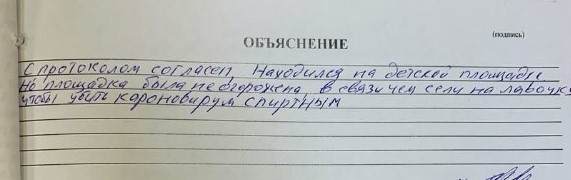 (подпись)
ОБЪЯСНЕНИЕ
С протоколом согласен, Находился на детской площадке
Но площадка была не огорожена в связи чем сели на лавочку
чтобы убить короновирум спиртным